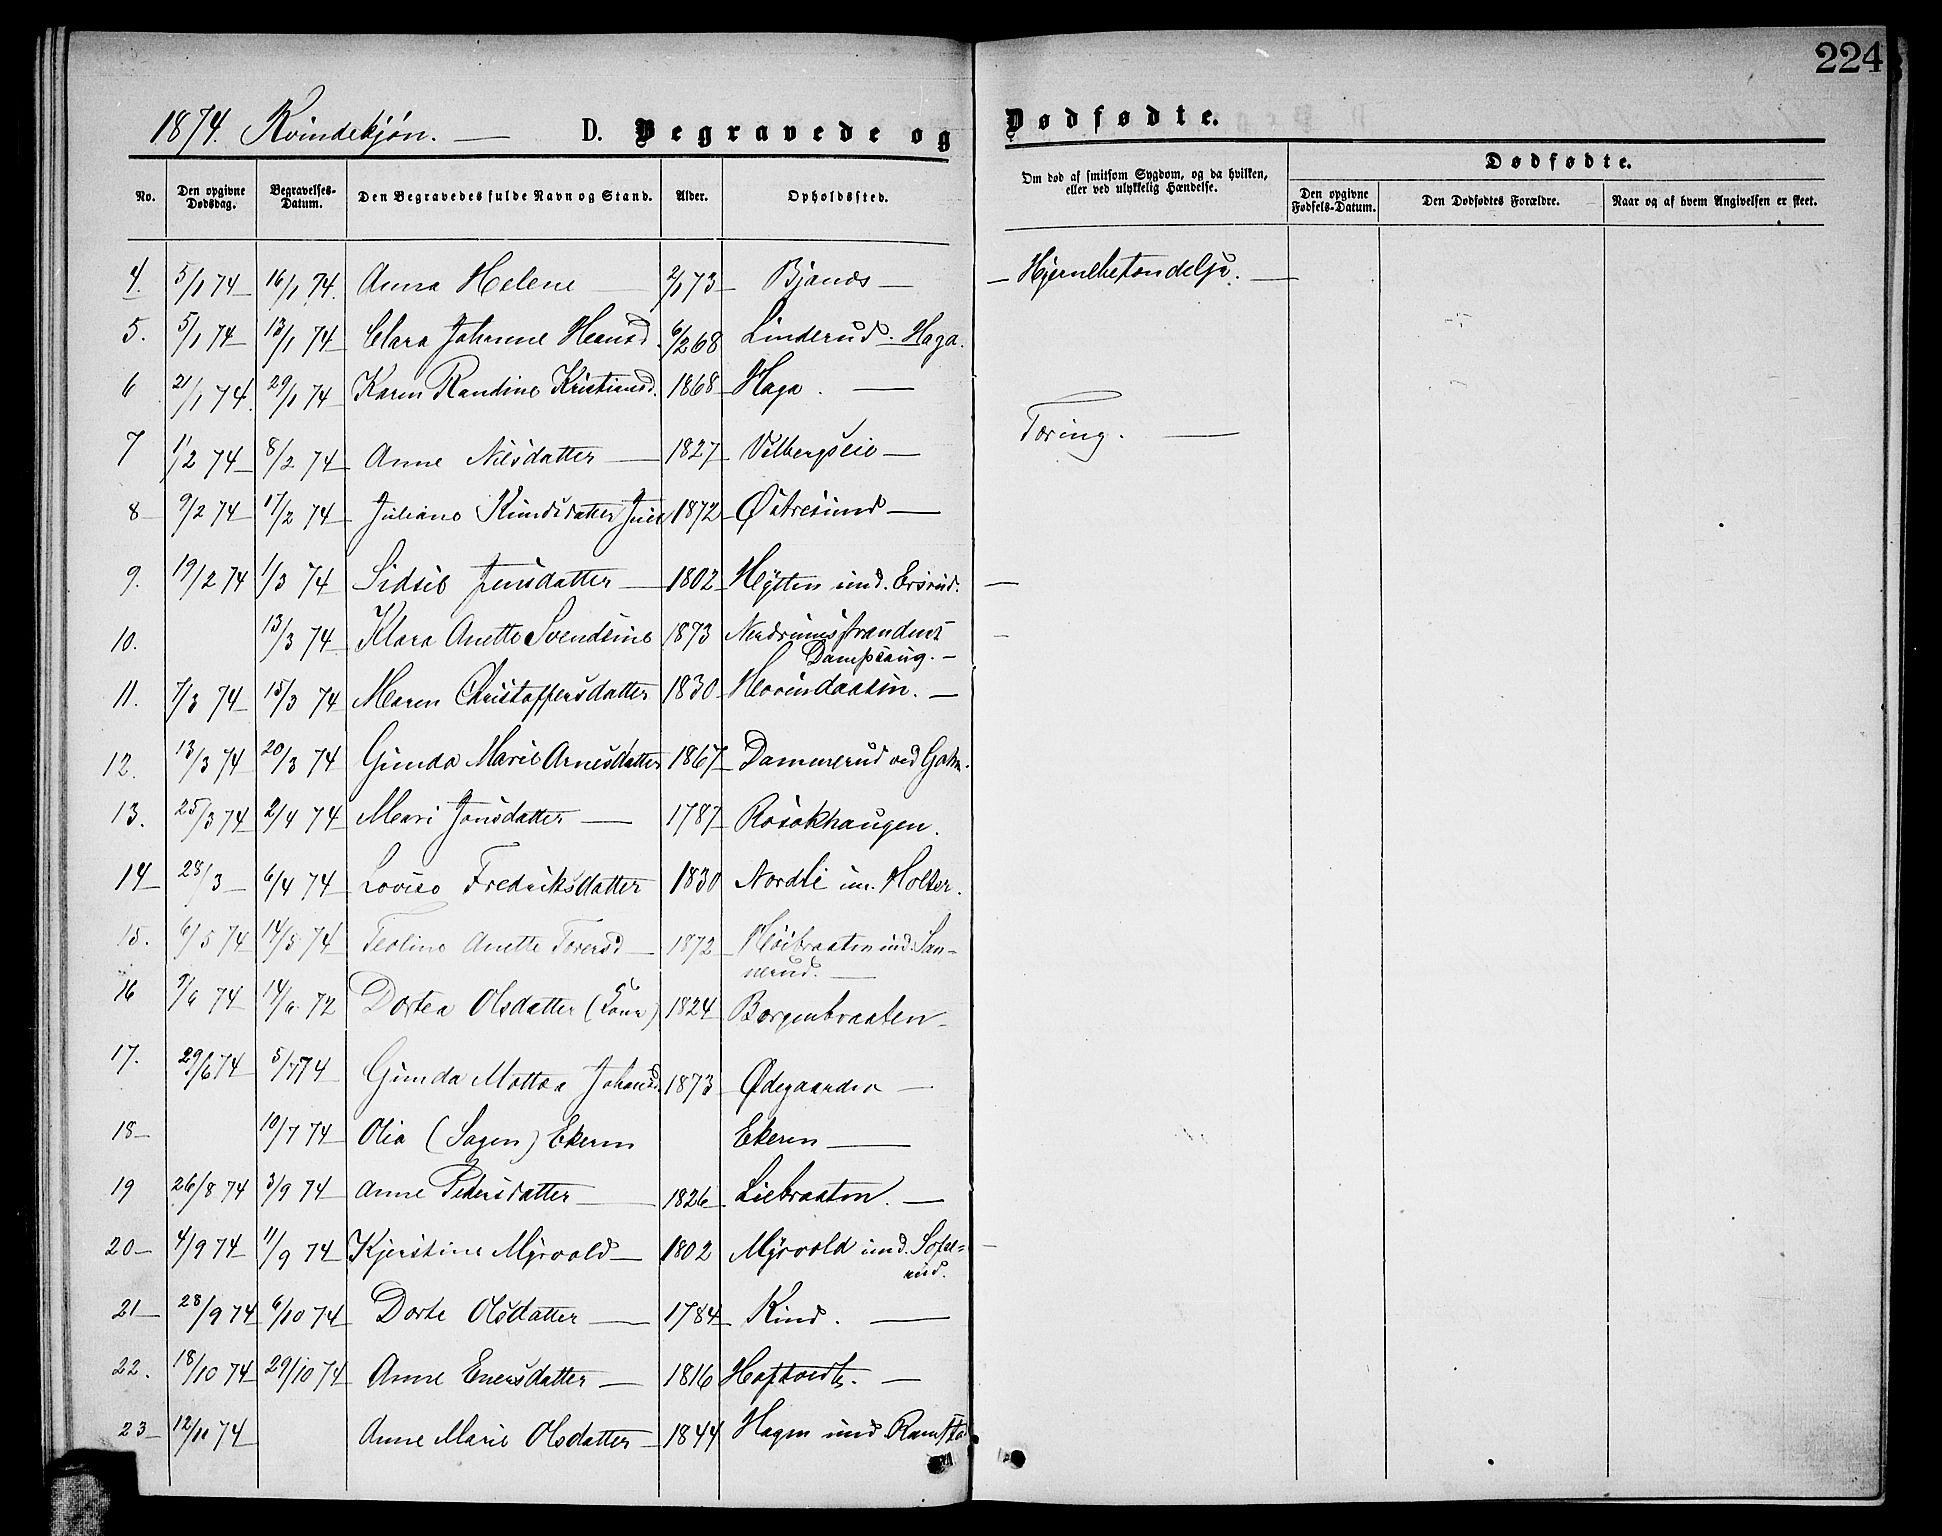 224
1874. Kvindekjøn. — D. Begravede og Dødfødte.
No. Den opgivne Dødsdag. Begravelses-Datum. Den Begravedes fulde Navn og Stand. Alder. Opholdssted. Om død af smitsom Sygdom, og da hvilken, eller ved ulykkelig Hændelse. Dødfødte.
Den opgivne Fødsels-Datum. Den Dødfødtes Forældre. Naar og af hvem Angivelsen er skeet.
4. 5/1 74 16/1 74. Anna Helene — 2/1 73 Bjanes — Hjernebetændelse. —
5. 5/1 74 13/1 74 Clara Johanne Hansd. 6/2 68 Linderud. Haga.
6 21/1 74. 29/1 74 Karen Randine Kristiansd. 1868 Haga. —
7 1/2 74 8/2 74 Anne Nilsdatter — 1827 Vilbergseie — Tæring. —
8 9/2 74 17/2 74 Juliane Knudsdatter 1872 Østresund —
9. 19/2 74 1/3 74 Sidsel Jensdatter — 1802 Hytten und. Ersrud. —
10. 13/3 74 Klara Anette Svendsine 1873 Nerdrumsstrandens
Dampsaug. —
11. 7/3 74 15/3 74 Maren Christoffersdatter 1830 Hovindaasen. —
12. 13/3 74 20/3 74 Gunda Marie Arnesdatter 1867 Dammerud ved
13. 25/3 74 2/4 74 Mari Jonsdatter — 1787 Rosokhaugen.
14 28/3 6/4 74 Lovise Fredriksdatter 1830 Nordli un. Holter.
15. 6/5 74 14/5 74 Teoline Anette Torersd — 1872 Høibraaten und. San-
nerud. —
16 9/6 74 14/6 72 Dortea Olsdatter 1824 Borgenbraaten
17. 29/6 74 5/7 74 Gunda Mattea Johansd. 1873 Ødegaarden —
18 10/7 74 Olia (Sagen) Ekeren Ekeren —
19 26/8 74 3/9 74 Anne Pedersdatter — 1826 Liebraaten. —
20 4/9 74 11/9 74 Kjerstine Myrvold — 1802 Myrvold und. Sofie-
rud.
21 28/9 74 6/10 74 Dorte Olsdatter — 1784 Kind. —
22. 18/10 74 29/10 74 Anne Enersdatter — 1816 Haftvedt. —
23 12/11 74 Anne Marie Olsdatter 1844 Hagen und Ramstad